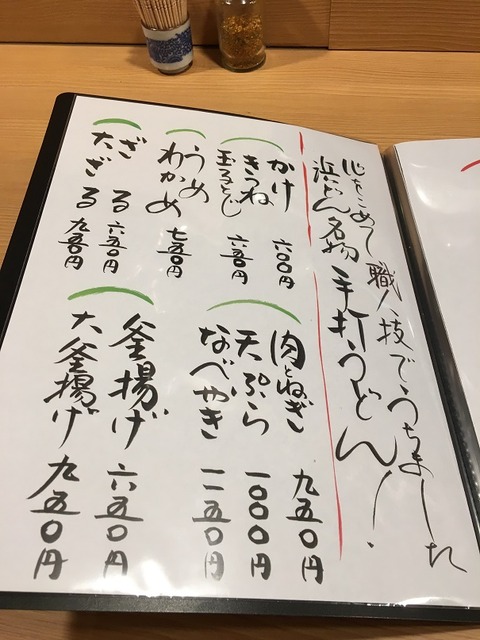 心をこめて職人技でうちました
浜どん名物 手打うどん!
かけ 六〇〇円
きつね
玉子とじ 六五〇円
うめ
わかめ 七五〇円
ざる 六五〇円
大ざる 九五〇円
肉とねぎ 九五〇円
天ぷら 一〇〇〇円
なべやき 一一五〇円
釜揚げ 六五〇円
大釜揚げ 九五〇円